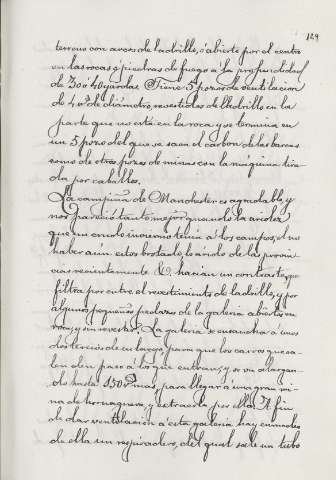 129
terreno con arcos de ladrillo, ó abierto por el centro
en las rocas y piedras de fuego á la profundidad
de 30 ó 40 yardas. Tiene 5 pozos de ventilacion
de 4,0 de diámetro, revestidos de ladrillo en la
parte que no está en la roca y se termina en
un 5 pozo del que se saca el carbon de las barcas
como de otros pozos de minas con la máquina tira
da por caballos.
La campiña de Manchester es agradable, y
nos pareció tanto mejor quando la aridez
que un crudo invierno tenia á los campos, el no
haber aún estos brotado, lo árido de las provin
cias recientemente hacian un contraste, que
filtra por entre el revestimiento de ladrillo, y por
algunos pequeños pedazos de la galeria abiertos en
roca y sin revestir. La galeria se ensancha á unos
dos tercios de su largo, para que los carros que sa
len den paso á los que entran, y se va alargan
do hasta 150 mas, para llegar á una gran mi
na de hornaguera, y extraerla por ella. A fin
de dar ventilacion á esta galeria, hay en medio
de ella un respiradero, del qual sale un tubo